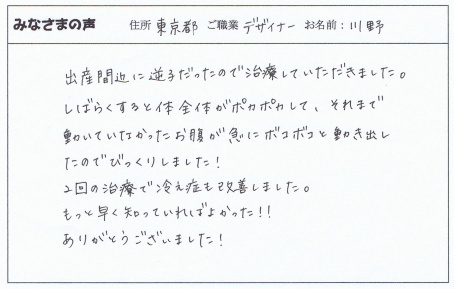 みなさまの声 住所 東京都 ご職業 デザイナー お名前：川野
出産間近に逆子だったので治療していただきました。
しばらくすると体全体がポカポカして、それまで
動いていなかったお腹が急にボコボコと動き出し
たのでびっくりしました！
2回の治療で冷え症も改善しました。
もっと早く知っていればよかった！！
ありがとうございました！